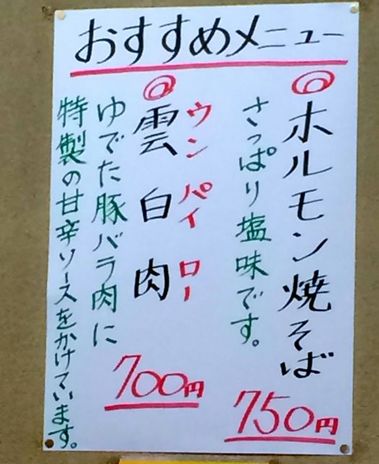 おすすめメニュー
◎ホルモン焼そば
さっぱり塩味です。
750円
◎雲白肉
ウンパイロー
ゆでた豚バラ肉に
特製の甘辛ソースをかけています。
700円